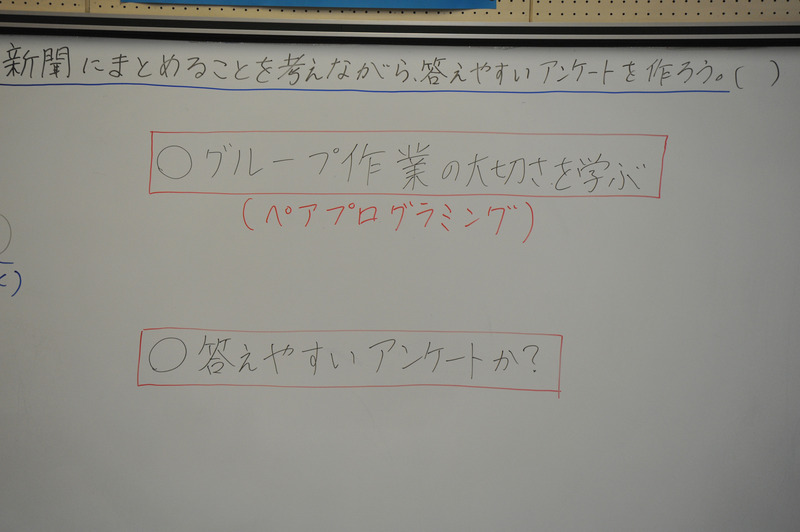 新聞にまとめることを考えながら、答えやすいアンケートを作ろう。( )
○グループ作業の大切さを学ぶ
(ペアプログラミング)
○答えやすいアンケートか?